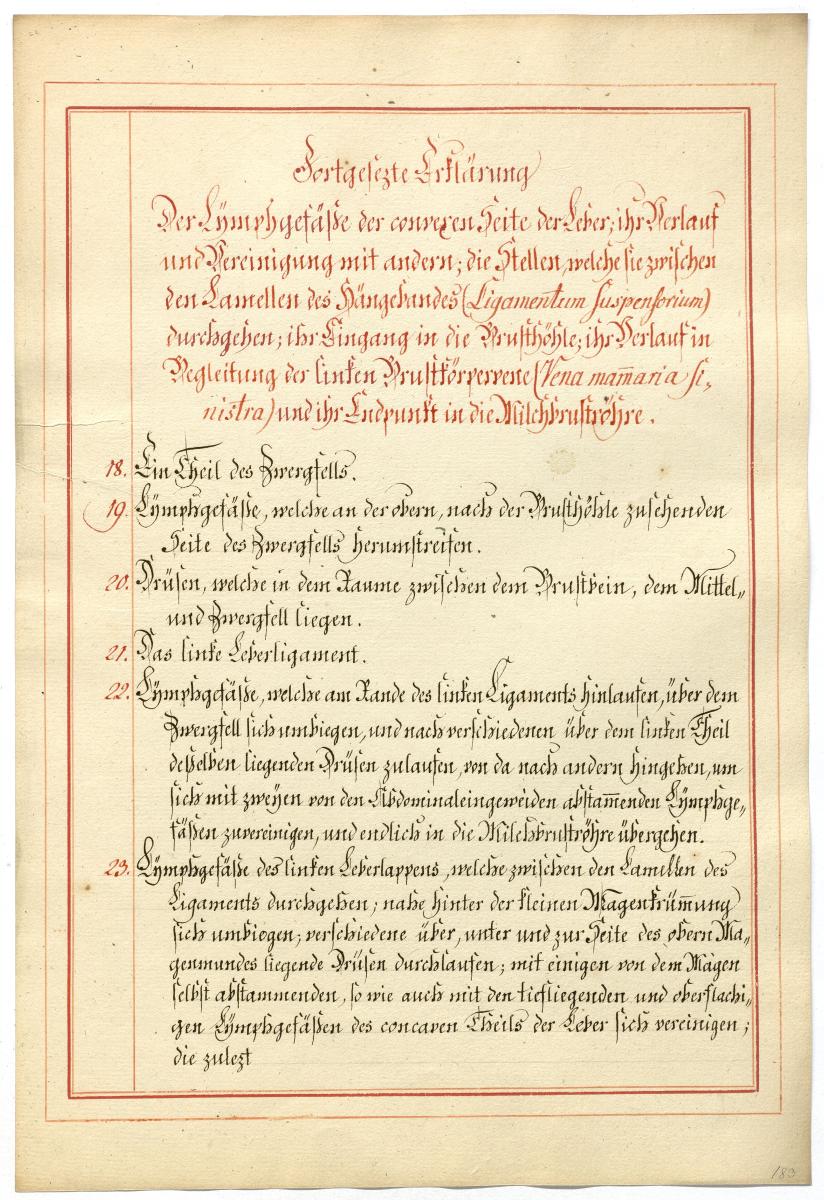 Fortgesezte Erklärung
Der Lÿmphgefäße der convexen Seite der Leber; ihr Verlauf
und Vereinigung mit andern; die Stellen, welche sie zwischen
den Lamellen des Hängebandes (Ligamentum suspensorium)
durchgehen; ihr Eingang in die Brusthöhle; ihr Verlauf in
Begleitung der linken Brustkörpervene (Vena mam̄aria si„
nistra) und ihr Endpunkt in die Milchbruströhre.
18. Ein Theil des Zwergfells.
19. Lÿmphgefäße, welche an der obern, nach der Brusthöhle zusehenden
Seite des Zwergfells herumstreifen.
20. Drüsen, welche in dem Raume zwischen dem Brustbein, dem Mittel„
und Zwergfell liegen.
21. Das linke Leberligament.
22. Lÿmphgefäße, welche am Rande des linken Ligaments hinlaufen, über dem
Zwergfell sich umbiegen, und nach verschiedenen über dem linken Theil
deßelben liegenden Drüsen zulaufen, von da nach andern hingehen, um
sich mit zweyen von den Abdominaleingeweiden abstam̄enden Lÿmphge„
fäßen zuvereinigen, und endlich in die Milchbruströhre übergehen.
23. Lÿmphgefäße des linken Leberlappens, welche zwischen den Lamellen des
Ligaments durchgehen; nahe hinter der kleinen Magenkrüm̄ung
sich umbiogen; verschiedene über, unter und zur Seite des obern Ma„
genmundes liegende Drüsen durchlaufen; mit einigen von dem Magen
selbst abstammenden, so wie auch mit den tiefliegenden und oberflachi„
gen Lÿmphgefäßen des concaven Theils der Leber sich vereinigen;
die zulezt
183